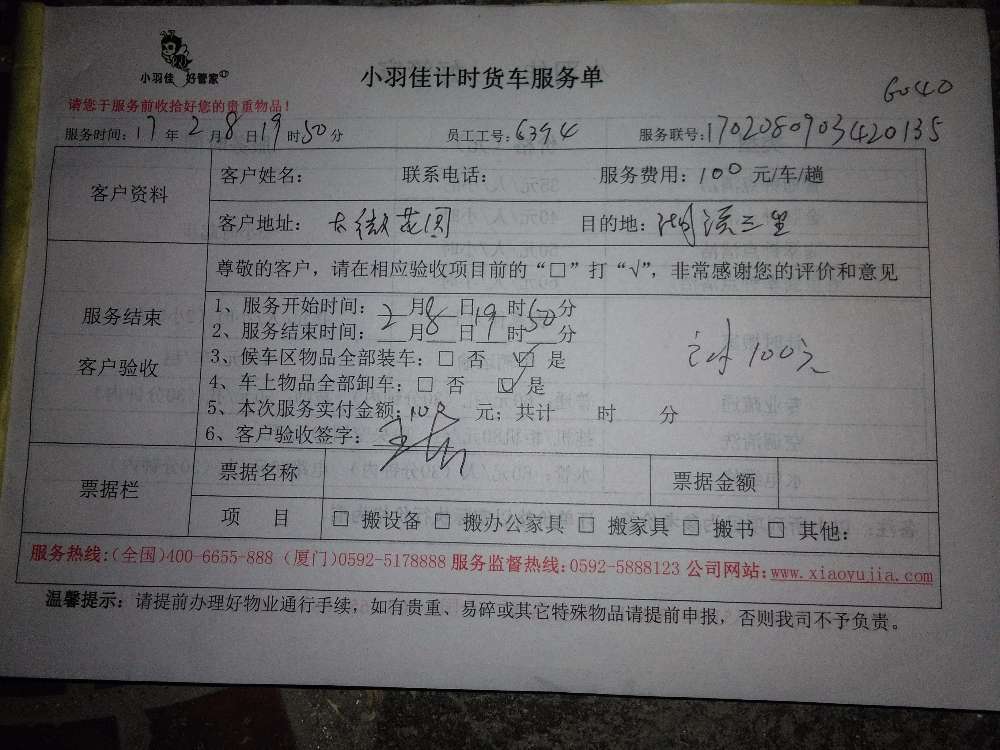 小羽佳 好管家
小羽佳计时货车服务单
6040
请您于服务前收拾好您的贵重物品！
服务时间：17年2月8日19时50分 员工工号：6394 服务联号：1702080903420135
客户资料
客户姓名： 联系电话： 服务费用：100元/车/趟
客户地址：古微花园 目的地：湖滨三里
服务结束
客户验收
尊敬的客户，请在相应验收项目前的“□”打“√”，非常感谢您的评价和意见
1、服务开始时间：2月8日19时50分
2、服务结束时间：月 日 时 分
3、候车区物品全部装车：□ 否 ☑ 是
4、车上物品全部卸车：□ 否 ☑ 是
5、本次服务实付金额：100元；共计 时 分
6、客户验收签字：
100元
票据栏
票据名称 票据金额
项 目 □ 搬设备 □ 搬办公家具 □ 搬家具 □ 搬书 □ 其他：
服务热线：(全国)400-6655-888 (厦门)0592-5178888 服务监督热线：0592-5888123 公司网站：www.xiaoyujia.com
温馨提示：请提前办理好物业通行手续，如有贵重、易碎或其它特殊物品请提前申报，否则我司不予负责。